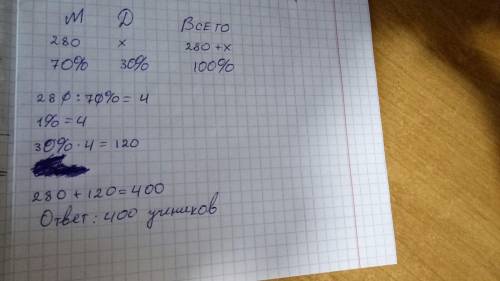 М Д Всего
280 х 280+х
70% 30% 100%
280:70%=4
1%=4
30%·4=120
280+120=400
Ответ: 400 учиников